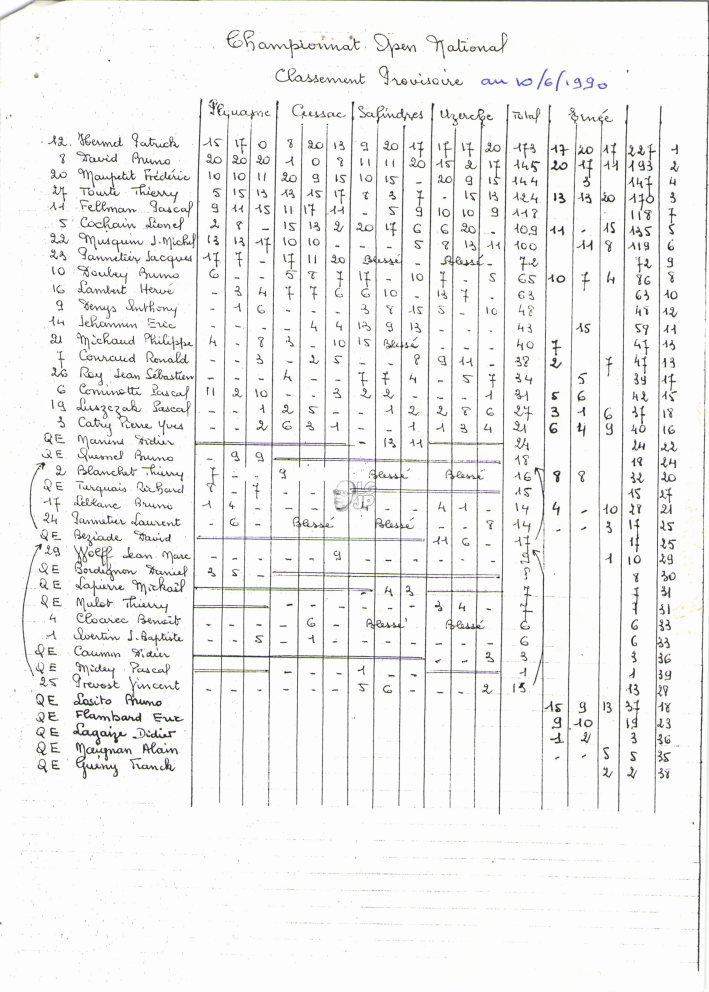 Championnat Open National
Classement Provisoire au 10/6/1990
Plouasne Cussac Salindres Uzerche Total Ernée
12. Hermel Patrick 15 17 0 8 20 13 9 20 17 17 17 20 173 17 20 17 227 1
8 David Bruno 20 20 20 1 0 8 11 11 20 15 2 17 145 20 17 11 193 2
20 Maupetit Frédéric 10 10 11 20 9 15 10 15 - 20 9 15 144 3 147 4
27 Tourte Thierry 5 15 13 13 15 17 8 3 7 - 15 13 124 13 13 20 170 3
11 Fellman Pascal 9 11 15 11 17 11 - 5 9 10 10 9 118 118 7
5 Cochain Lionel 2 8 - 15 13 2 20 17 6 6 20 - 109 11 - 15 135 5
22 Musquin J.Michel 13 13 17 10 10 - - - 5 8 13 11 100 11 8 119 6
23 Pannetier Jacques 17 7 - 17 11 20 Blessé Blessé - 72 72 9
10 Doubey Bruno 6 - - 5 8 7 17 - 10 7 - 5 65 10 7 4 86 8
16 Lambert Hervé - 3 4 7 7 6 6 10 - 13 7 - 63 63 10
9 Denys Anthony - 1 6 - - - 3 8 15 5 - 10 48 48 12
14 Jehannin Eric - - - - 4 4 13 9 13 - - - 43 15 59 11
21 Michaud Philippe 4 - 8 3 - 10 15 Blessé - - - 40 7 47 13
7 Courcaud Ronald - - 3 - 2 5 - - 8 9 11 - 38 2 7 47 13
26 Roy Jean Sébastien - - - 4 - - 7 7 4 - 5 7 34 5 39 17
6 Cominotti Pascal 11 2 10 - - 3 2 2 - - - 1 31 5 6 42 15
19 Luszczak Pascal - - 1 2 5 - - 1 2 2 8 6 27 3 1 6 37 18
3 Catry Pierre Yves - - 2 6 3 1 - - 1 1 3 4 21 6 4 9 40 16
QE Didier - 13 11 24 24 22
QE Quesnel Bruno - 9 9 18 18 24
2 Blanchet Thierry 7 - - 9 Blessé Blessé 16 8 8 32 20
QE Turquais Richard 8 - 7 - - - 15 15 27
17 Leblanc Bruno 1 4 - - - - 4 - - 4 1 - 14 4 - 10 28 21
24 Pannetier Laurent - 6 - Blessé Blessé - - 8 14 - - 3 17 25
QE Beziade David 11 6 - 17 17 25
29 Wolff Jean Marc - - - - - 9 - - - - - - 9 1 10 29
QE Bordignon Daniel 3 5 - 8 8 30
QE Lapierre Mickaël - 4 3 7 7 31
QE Mulot Thierry - - - - - - 3 4 - 7 7 31
4 Cloarec Benoît - - - - 6 - Blessé Blessé 6 6 33
1 Ivertin J.Baptiste - - 5 - 1 - - - - - - - 6 6 33
QE Caumon Didier - - 3 3 3 36
QE Midey Pascal - - - 1 - - 1 1 39
25 Prevost Vincent - - - - - - 5 6 - - - 2 13 13 28
QE Losito Bruno 15 9 13 37 18
QE Flambard Eric 9 10 19 23
QE Lagaize Didier 1 2 3 36
QE Maugnan Alain - - 5 5 35
QE Guény Franck 2 2 38